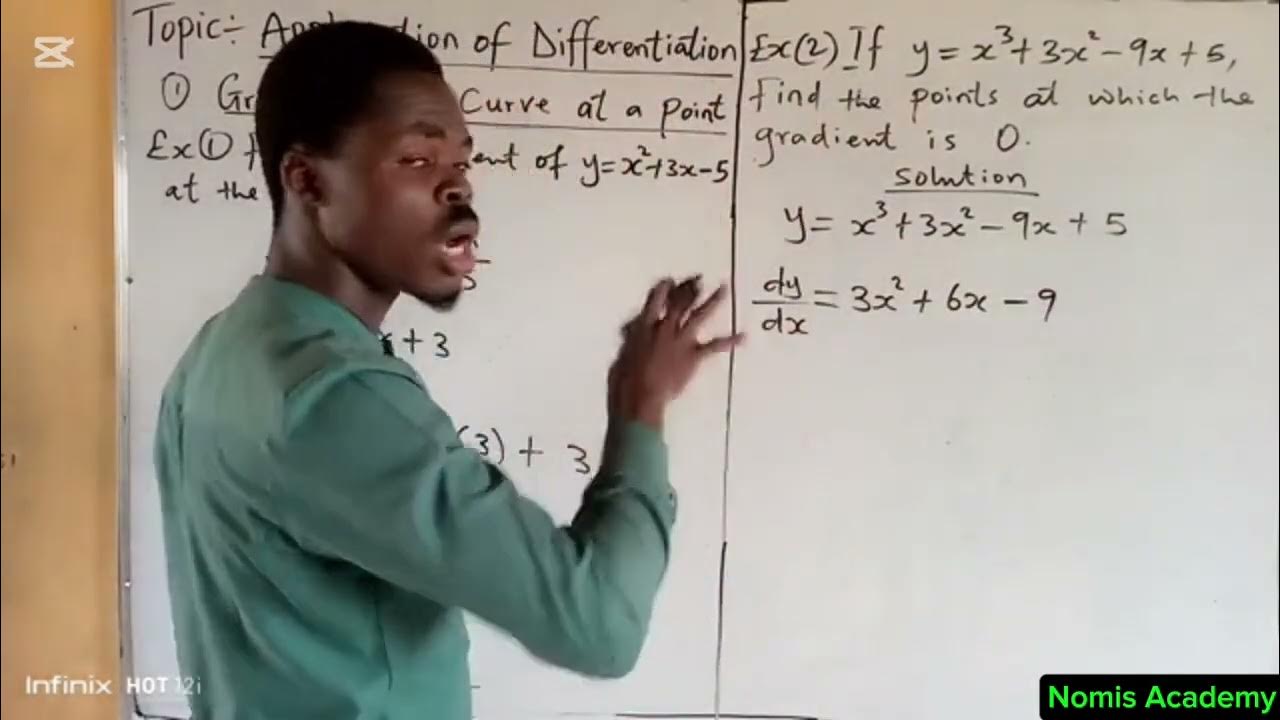 Topic:- of Differentiation
① Curve at a point
Ex① of y=x²+3x-5
at the
+ 3
(3) + 3
Ex(2) If y = x³+3x²-9x+5,
find the points at which the
gradient is 0.
Solution
y= x³+3x²-9x + 5
dy/dx = 3x² + 6x - 9
Infinix HOT 12i
Nomis Academy